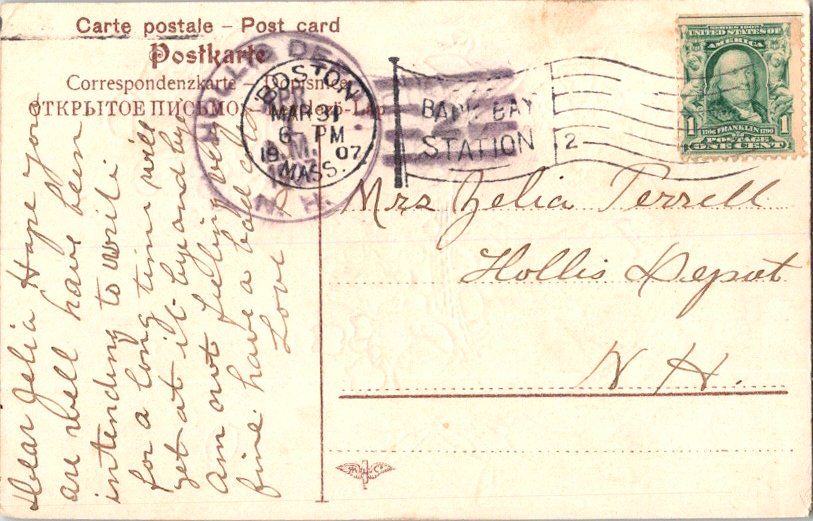 Carte postale – Post card
Postkarte
Correspondenzkarte – Dopisnice
ОТКРЫТОЕ ПИСЬМО
BOSTON
MAR 31
6 – PM
19 07
MASS.
N. H.
BACK BAY
STATION
2
SERIES 1902
UNITED STATES OF
AMERICA
1 FRANKLIN 1
POSTAGE
ONE CENT
Mrs Zelia Terrell
Hollis Depot
N. H.
Dear Zelia Hope you
are well have been
intending to write
for a long time will
get at it by and by
Am not feeling very
fine have a bad cold
Love